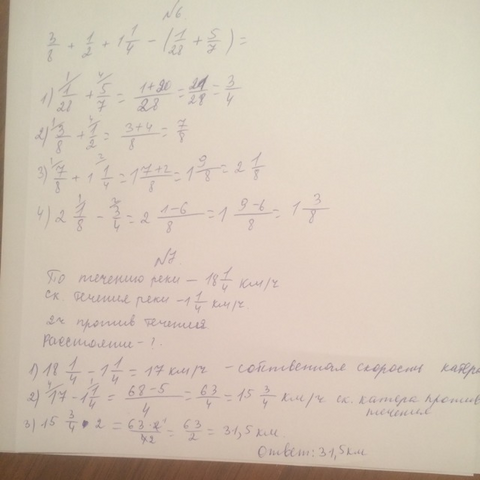 №6.
3/8 + 1/2 + 1 1/4 − (1/28 + 5/7) =
1) 1/28 + 5/7 = (1+20)/28 = 21/28 = 3/4
2) 3/8 + 1/2 = (3+4)/8 = 7/8
3) 7/8 + 1 1/4 = 1 (7+2)/8 = 1 9/8 = 2 1/8
4) 2 1/8 − 3/4 = 2 (1−6)/8 = 1 (9−6)/8 = 1 3/8
№7
По течению реки – 18 1/4 км/ч
Ск. течения реки – 1 1/4 км/ч.
2ч против течения
Расстояние – ?.
1) 18 1/4 − 1 1/4 = 17 км/ч – собственная скорость катера
2) 17 − 1 1/4 = (68−5)/4 = 63/4 = 15 3/4 км/ч ск. катера против
течения
3) 15 3/4 · 2 = 63·2/42 = 63/2 = 31,5 км.
Ответ: 31,5км